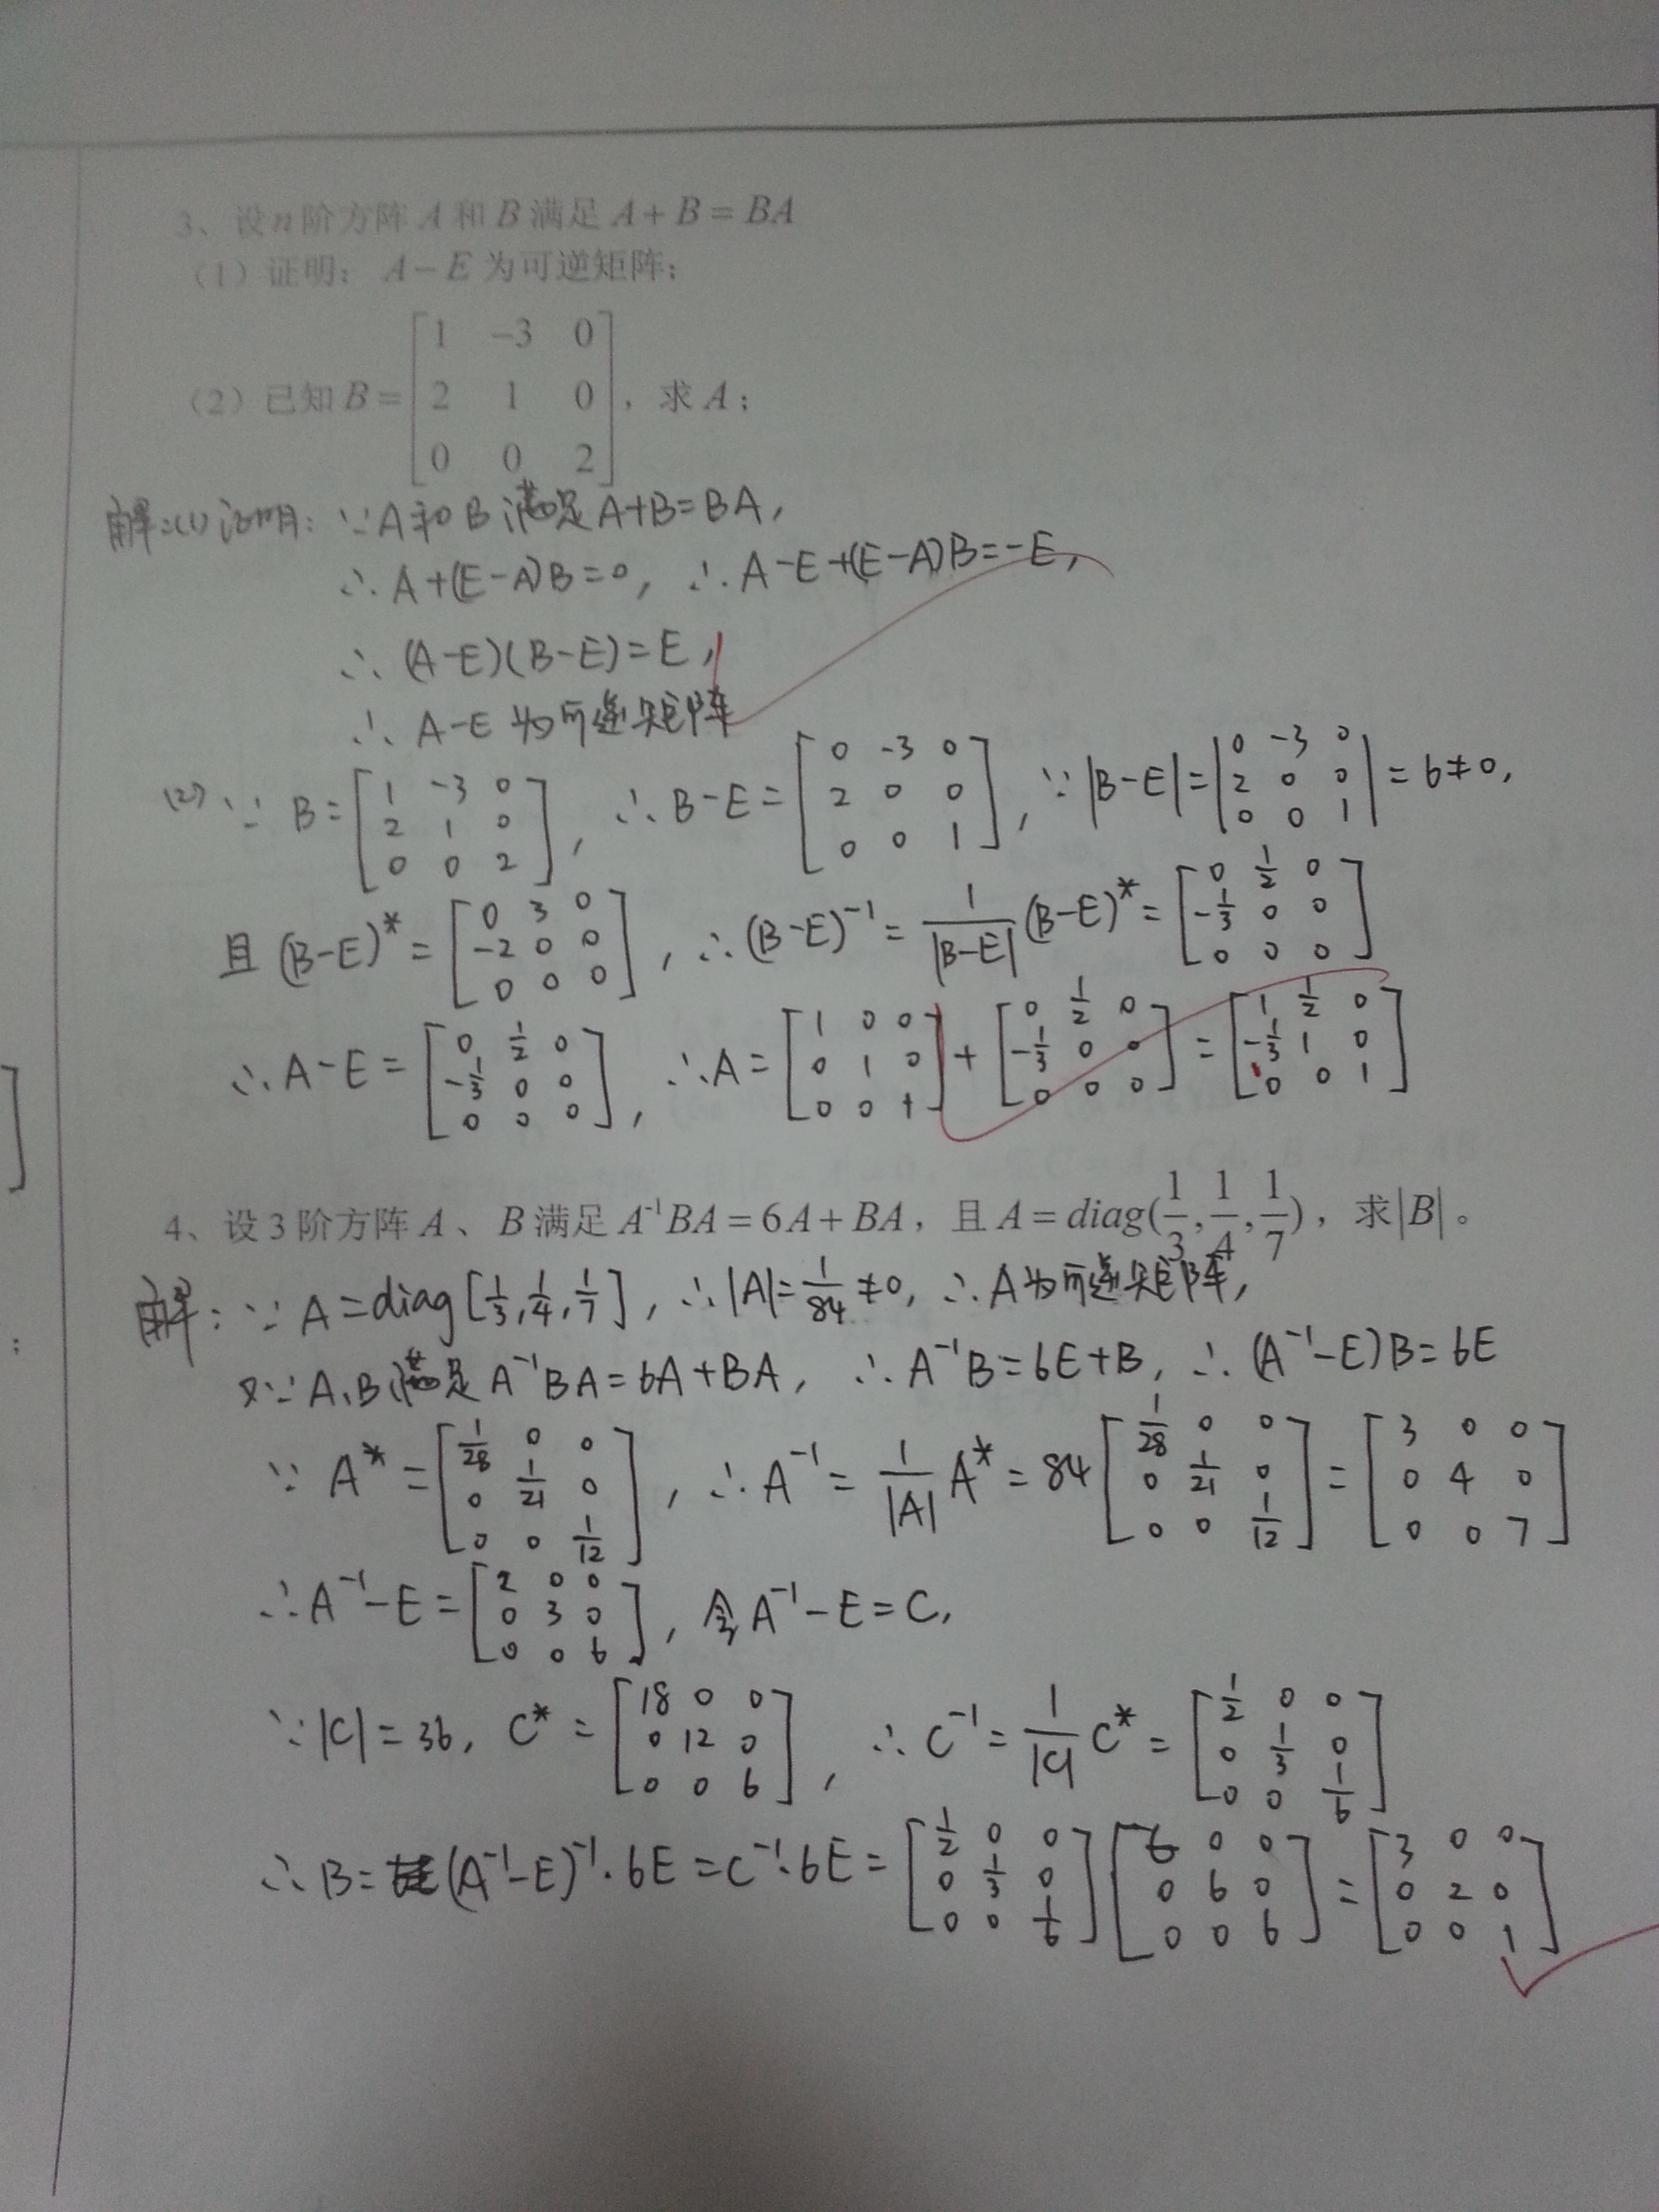 3、设n阶方阵 A 和 B 满足 A + B = BA
（1）证明：A − E 为可逆矩阵；
（2）已知 B = [1 −3 0; 2 1 0; 0 0 2]，求 A；
解:(1)证明: ∵A和B满足A+B=BA,
∴ A+(E-A)B=0, ∴ A-E+(E-A)B=-E,
∴ (A-E)(B-E)=E,
∴ A-E为可逆矩阵
(2) ∵ B=[1 -3 0; 2 1 0; 0 0 2], ∴ B-E=[0 -3 0; 2 0 0; 0 0 1], ∵ |B-E|=|0 -3 0; 2 0 0; 0 0 1|=6≠0,
且 (B-E)*=[0 3 0; -2 0 0; 0 0 0], ∴ (B-E)⁻¹=1/|B-E| (B-E)*=[0 1/2 0; -1/3 0 0; 0 0 0]
∴ A-E=[0 1/2 0; -1/3 0 0; 0 0 0], ∴A=[1 0 0; 0 1 0; 0 0 1]+[0 1/2 0; -1/3 0 0; 0 0 0]=[1 1/2 0; -1/3 1 0; 0 0 1]
4、设 3 阶方阵 A、B 满足 A⁻¹BA = 6A + BA，且 A = diag(1/3, 1/4, 1/7)，求|B|。
解: ∵ A=diag[1/3,1/4,1/7], ∴|A|=1/84≠0, ∴A为可逆矩阵,
又∵A、B满足A⁻¹BA=6A+BA, ∴ A⁻¹B=6E+B, ∴ (A⁻¹-E)B=6E
∵ A*=[1/28 0 0; 0 1/21 0; 0 0 1/12], ∴A⁻¹=1/|A| A*=84[1/28 0 0; 0 1/21 0; 0 0 1/12]=[3 0 0; 0 4 0; 0 0 7]
∴A⁻¹-E=[2 0 0; 0 3 0; 0 0 6], 令A⁻¹-E=C,
∵|C|=36, C*=[18 0 0; 0 12 0; 0 0 6], ∴ C⁻¹=1/|C| C*=[1/2 0 0; 0 1/3 0; 0 0 1/6]
∴ B=(A⁻¹-E)⁻¹·6E=C⁻¹·6E=[1/2 0 0; 0 1/3 0; 0 0 1/6][6 0 0; 0 6 0; 0 0 6]=[3 0 0; 0 2 0; 0 0 1]